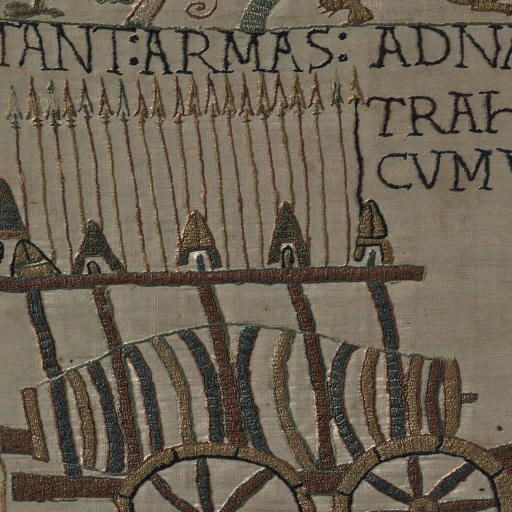 TANT:ARMAS: ADNA
TRAH
CVM